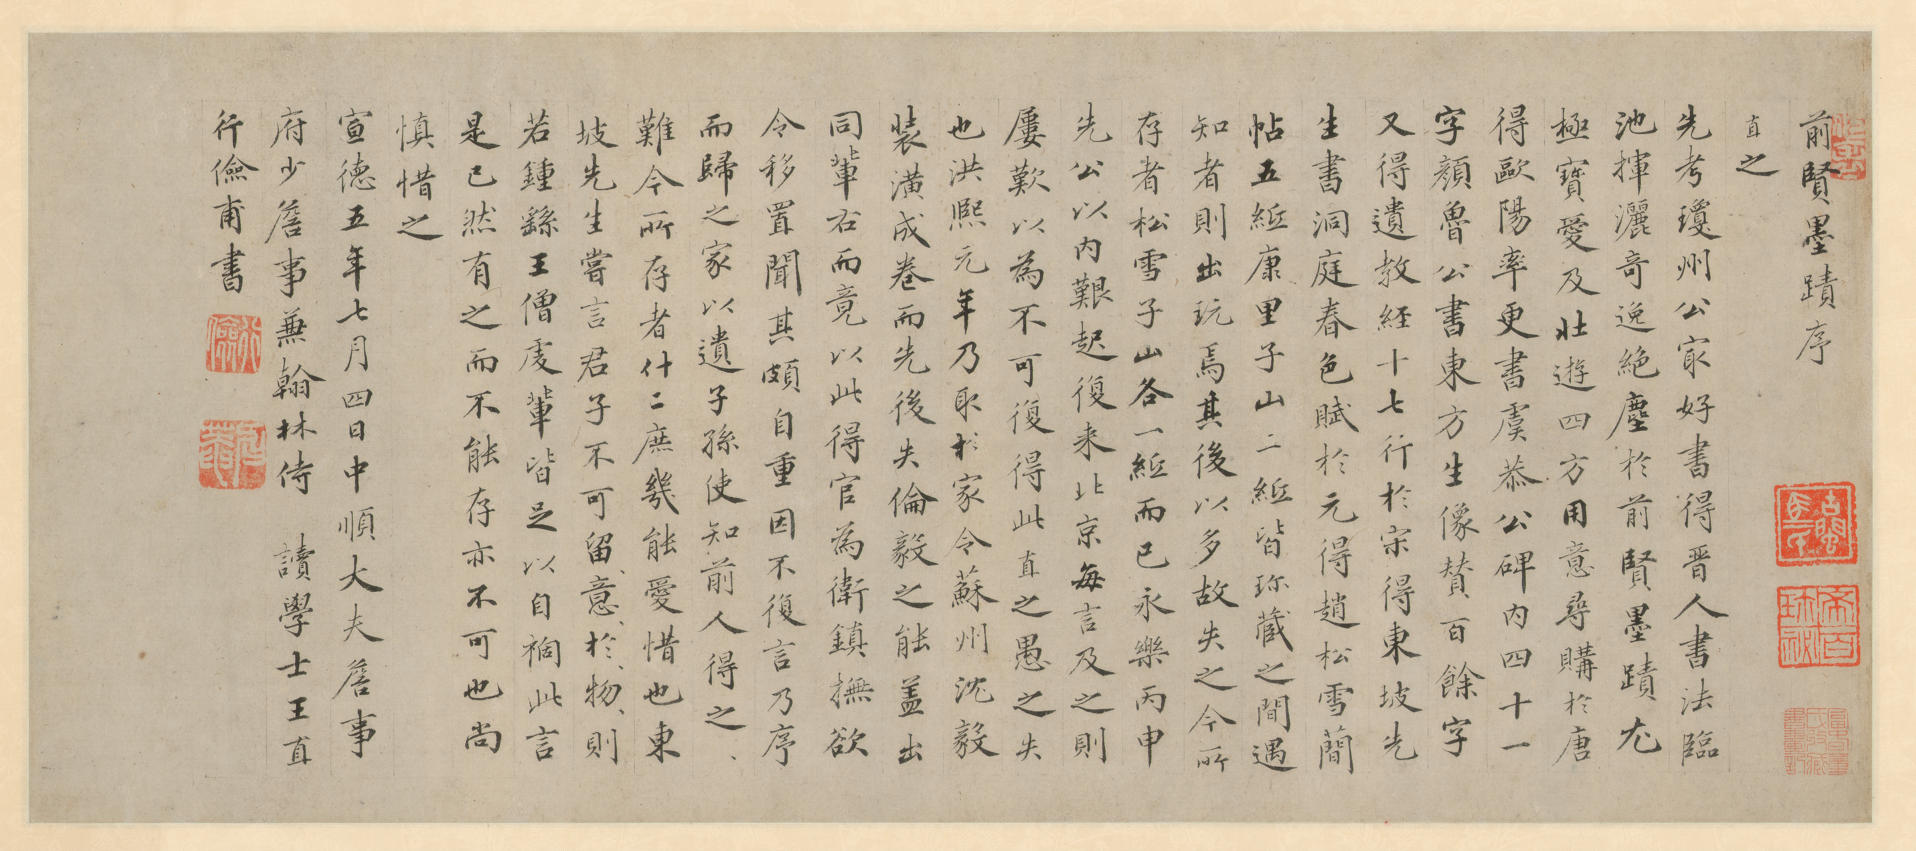 前賢墨蹟序
直之
先考瓊州公家好書得晋人書法臨
池揮灑奇逸絕塵於前賢墨蹟尤
極寶愛及壯遊四方用意尋購於唐
得歐陽率更書虞恭公碑内四十一
字顏魯公書東方生像賛百餘字
又得遺教經十七行於宋得東坡先
生書洞庭春色賦於元得趙松雪蕳
帖五紙康里子山二紙皆珎藏之間遇
知者則出玩焉其後以多故失之今所
存者松雪子山各一紙而已永樂丙申
先公以内艱起復来北京每言及之則
屢歎以為不可復得此直之愚之失
也洪熈元年乃取於家令蘇州沈毅
裝潢成卷而先後失倫毅之能盖出
同輩右而竟以此得官為衛鎮撫欲
令移置聞其頗自重因不復言乃序
而歸之家以遺子孫使知前人得之
難今所存者什二庶幾能愛惜也東
坡先生嘗言君子不可留意於物則
若鍾繇王僧虔輩皆足以自禍此言
是已然有之而不能存亦不可也尚
慎惜之
宣德五年七月四日中順大夫詹事
府少詹事兼翰林侍 讀學士王直
行儉甫書